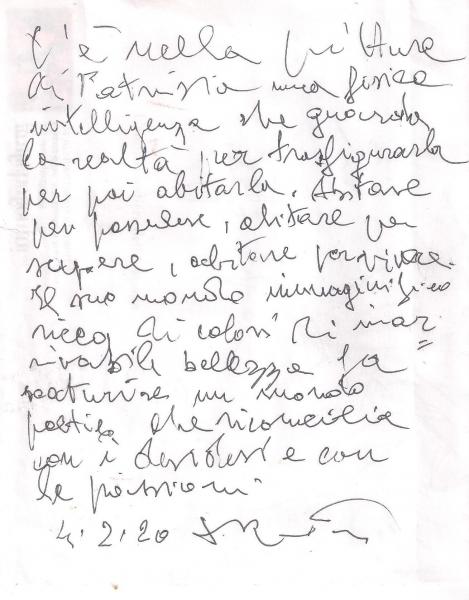 C'è nella pittura
di Patrizia una fisica
intelligenza che guarda
la realtà per trasfigurarla
per poi abitarla. Abitare
per possedere, abitare per
sapere, abitare per vivere.
Il suo mondo immaginifico
ricco di colori di inar=
rivabile bellezza fa
scaturire un mondo
poetico che riconcilia
con i desideri e con
le passioni.
4.2.20